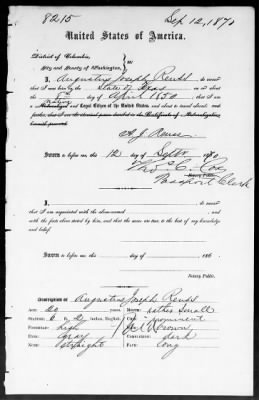 8215
Sep 12, 1870
United States of America.
District of Columbia,
City and County of Washington,
I, Augustus Joseph
that I was born in the State of Texas
on the day of April 1850 that I am a
Native
and Loyal Citizen of the United States, and about to travel abroad; and
further, that I am the
A. J.
Sworn to before me this 12 day of Septr 1870
Thos C. Cox
Notary Public.
Passport Clerk
that I am acquainted with the above-named
and with the
facts above stated by him, and that the same are true, to the best of my knowledge
and belief.
Sworn to before me this day of 186
Notary Public.
Description of Augustus Joseph
Age: 20
Mouth: rather small
Stature: Inches, English.
Chin: prominent
Forehead: high
Hair: Brown
Eyes: Gray
Complexion: dark
Nose: straight
Face: long